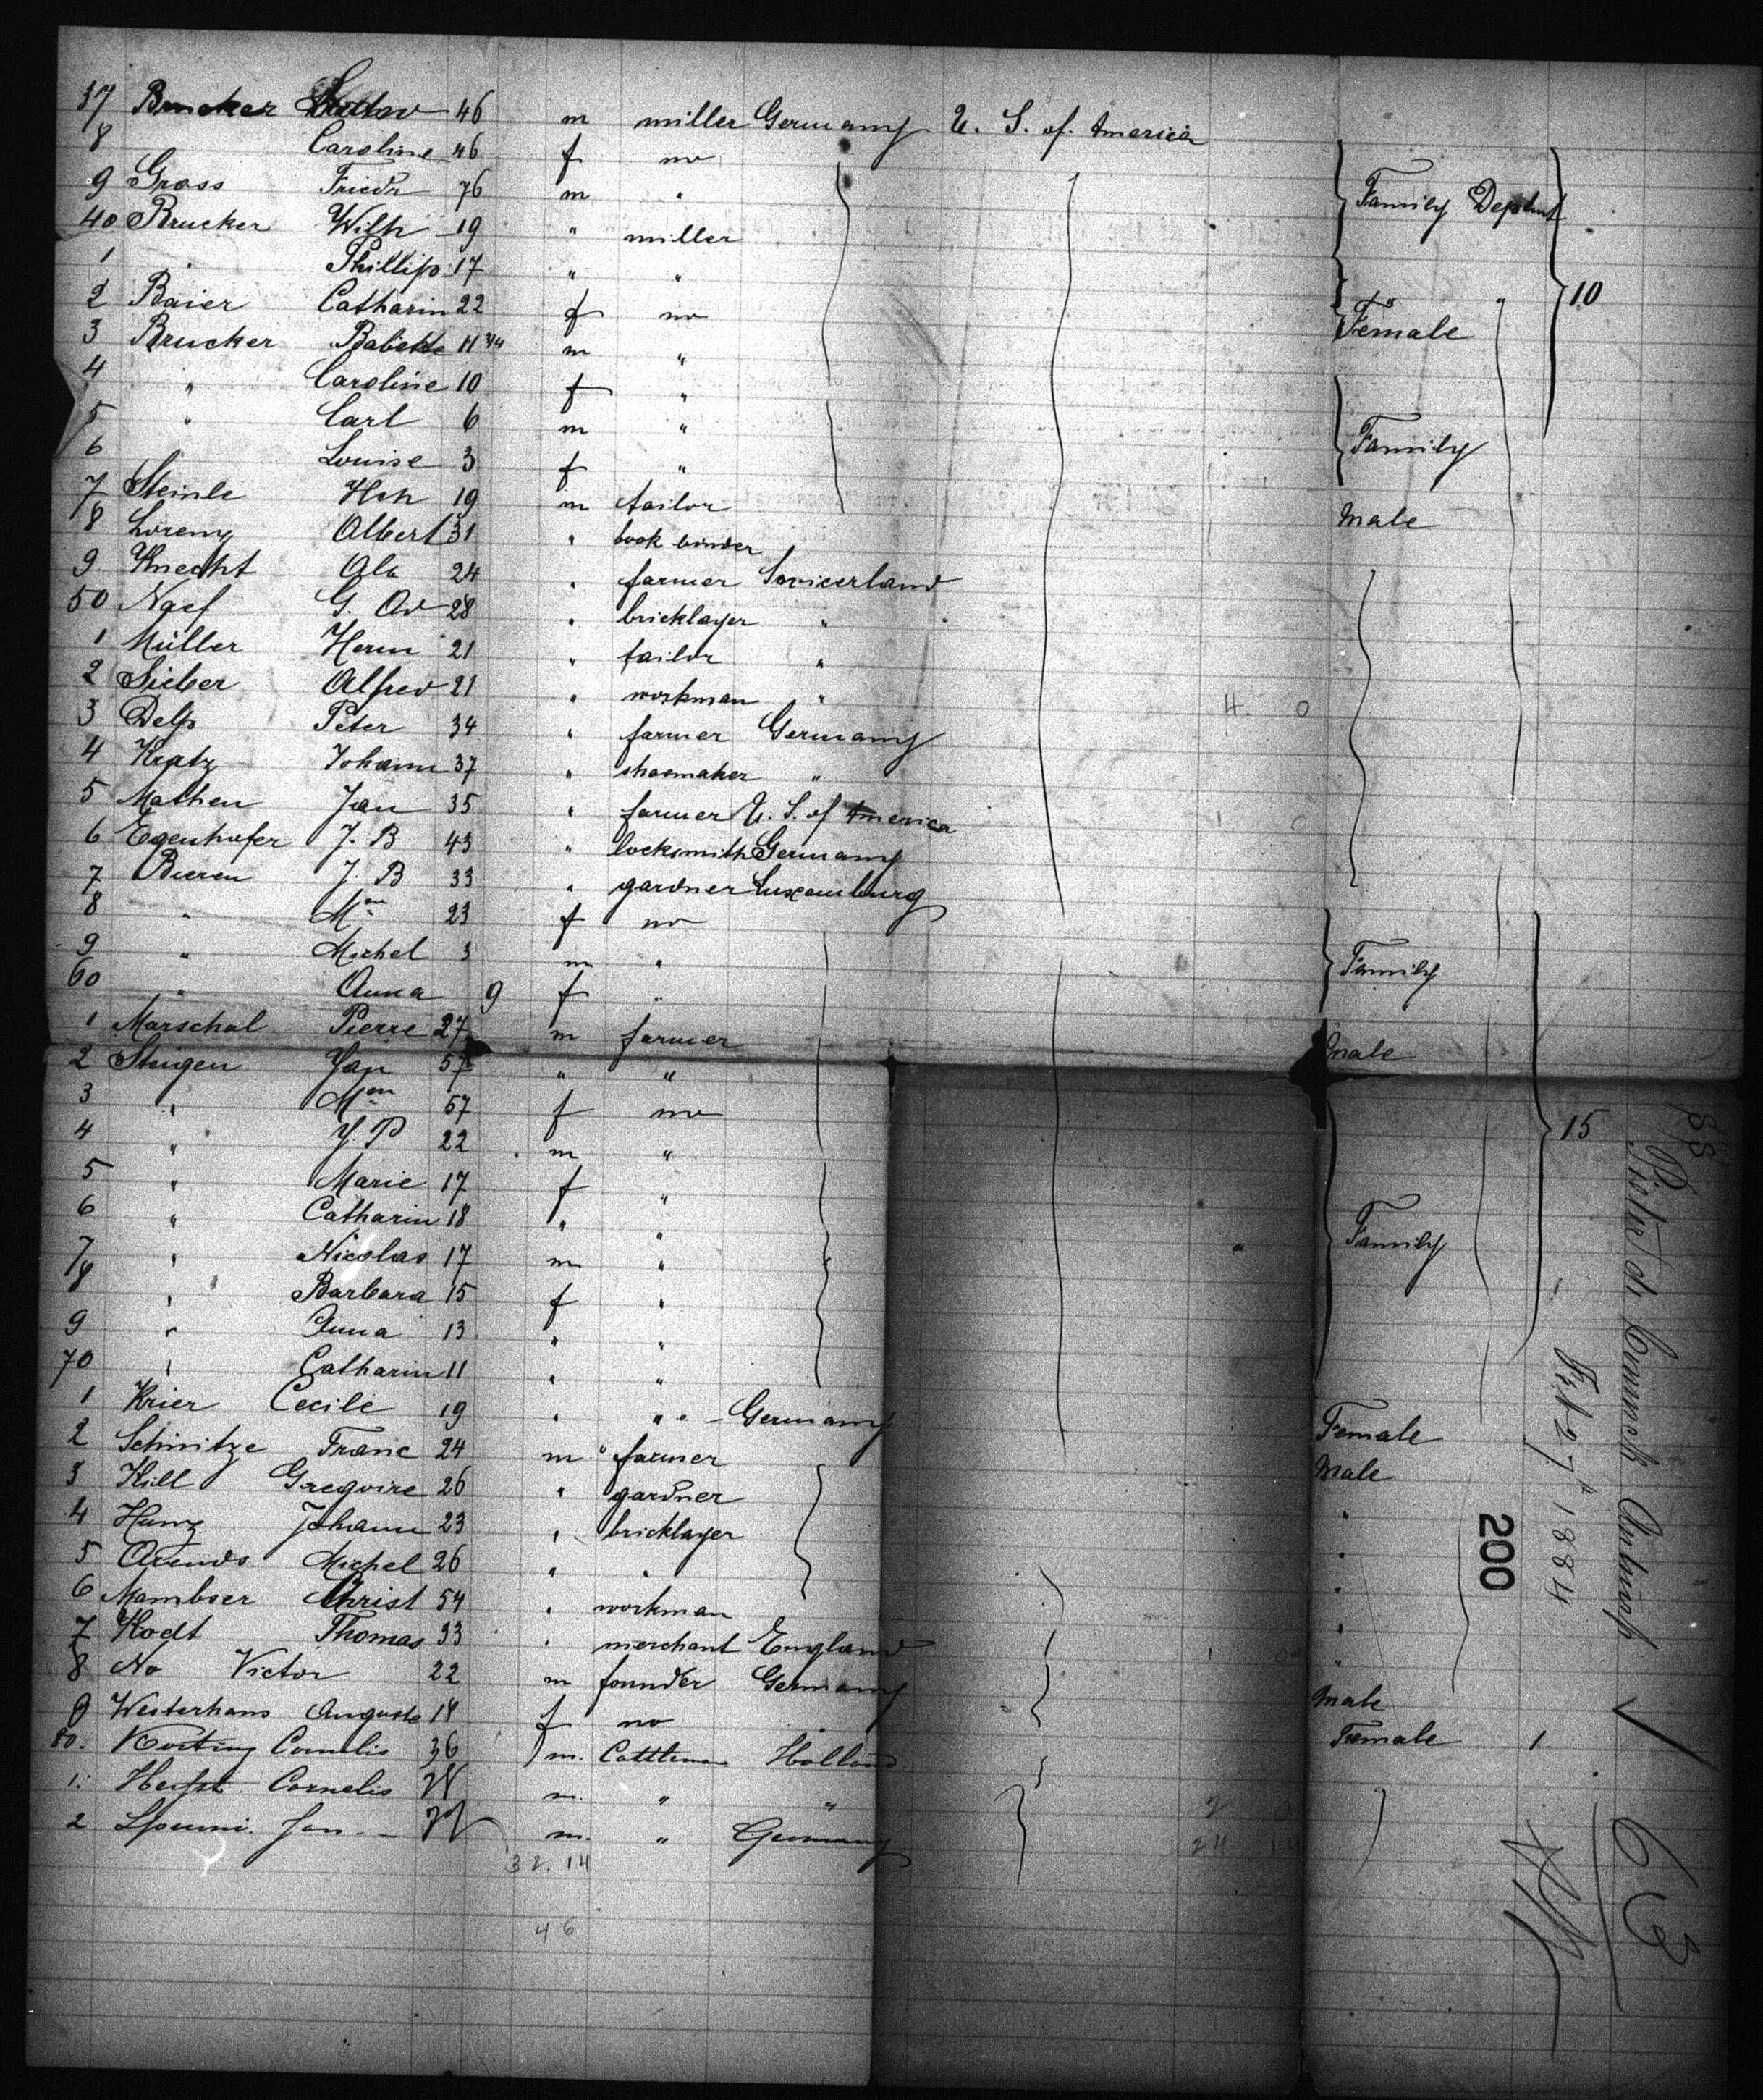 37 Brucker 46 m miller Germany U. S. of America
8 Caroline 46 f no
9 Gross Friedr 76 m " Family Deptmt
40 Brucker Wilh 19 " miller
1 " Phillip 17 " "
2 Baier Catharin 22 f no " " 10
3 Brucker Babette 11 3/4 m " Female
4 " Caroline 10 f "
5 " Carl 6 m " Family
6 Louise 3 f "
7 Steinle Hch 19 m tailor Male
8 Lorenz Albert 31 " book binder
9 Knecht 24 " farmer Swicerland
50 Naef G. Ad 28 " bricklayer "
1 Müller Herm 21 " tailor "
2 Sieber Alfred 21 " workman " 4. 0
3 Delp Peter 34 " farmer Germany
4 Kratz Johann 37 " shoemaker "
5 Mathen Jan 35 " farmer U. S. of America
6 Egenhofer J. B 43 " locksmith Germany
7 Bieren J. B 33 " gardner Luxemburg
8 " Mme 23 f no
9 " Michel 3 m " Family
60 " Anna 9 f "
1 Marschal Pierre 27 m farmer Male
2 Steigen Jan 57 " "
3 " Mme 57 f no
4 " J. P 22 m " 15
5 " Marie 17 f "
6 " Catharin 18 " "
7 " Nicolas 17 m " Family
8 " Barbara 15 f "
9 " Anna 13 " "
70 " Catharin 11 " "
1 Krier Cecile 19 " " " - Germany Female
2 Schnitze Franc 24 m " farmer Male
3 Kill Gregoire 26 " gardner
4 Hunz Johann 23 " bricklayer "
5 Arends Michel 26 " " "
6 Mambser Christ 54 " workman "
7 Hodt Thomas 33 " merchant England "
8 No Victor 22 m founder Germany Male
9 Westerhans Auguste 18 f no Female 1
80. Korting Cornelis 36 m. Cattleman Holland
1. Cornelis m. " "
2 Jan m. " Germany
32. 14
46
SS Pieter de Coninck Antwerp
Feb 27 1884
200
63